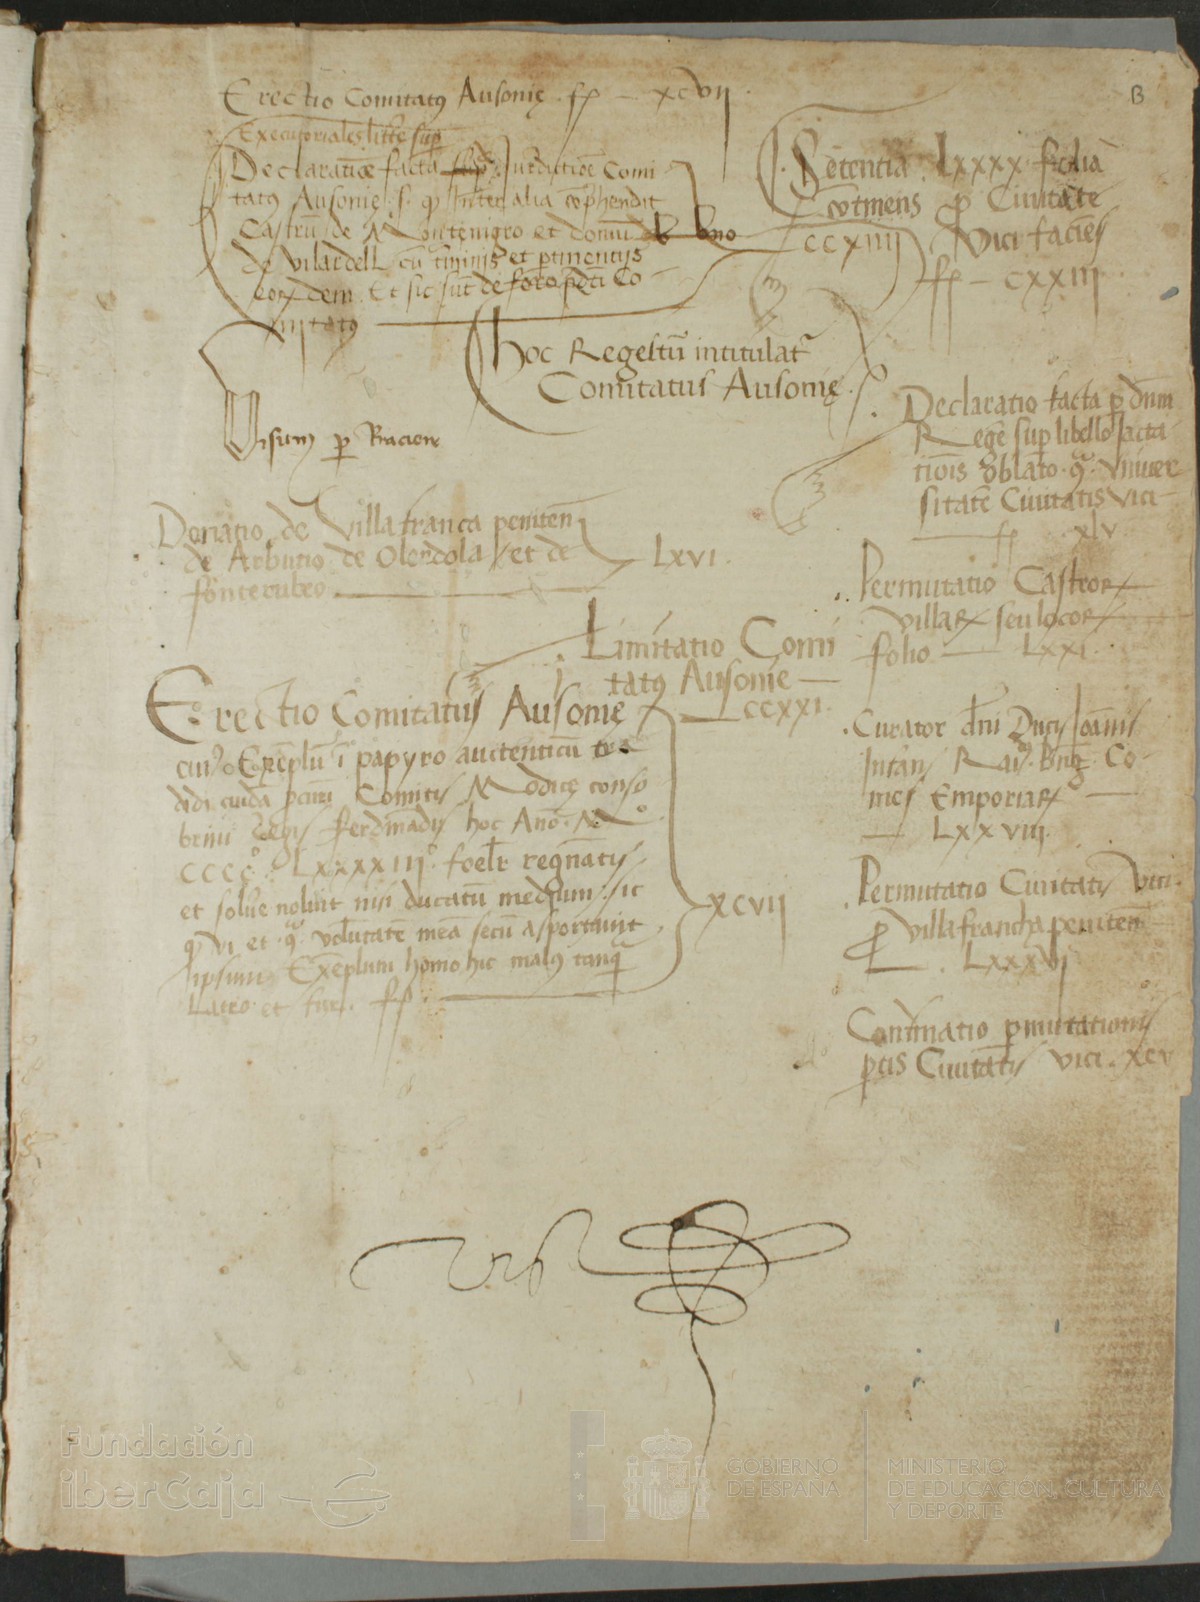 Erectio Comitatꝰ Ausonię . fo — xcvij .
B
Executoriales littē sup
Declaratiōe facta Jurdictiōe Comi
tatꝰ Ausonię . s . ꝙ Inter alia cōp̄hendit
Castrū de Montenigro et domū de bno
de Vilardell cū t̄minis et ꝑtinentijs
eorꝝdem . Et sic sūt de foro p̄dc̄i Co
mitatꝰ —
CCXIIIJ
Sētentia . Lxxxx . ficilia
cōtinens ꝓ Ciuitāte
Vici faciēs
ff — CXXIII
hoc Regestū intitulatr̄
Comitatus Ausonię .
Visum ꝑ Bracione
. Declaratio facta ꝑ dn̄m
Regē sup libello Jacta
tiōis oblāto . q̄ . Vniuer
sitatē Ciuitātis Vici
ff xlv
Donatio de Villafranca peniten̄
de Arbutio de Olerdola / et de
fonterubeo — LXVI .
Permutatio Castrorꝝ
villarꝝ seu locorꝝ
folio — LXXI .
. Limitatio Comi
tatꝰ Ausonie —
CCXXI .
Erectio Comitatus Ausonię
cuiꝰ Exēplū ī papyro auctenticū
didi cuidā ꝓcur̄i Comitis Modicę conso
brini Regis ferdinādi hoc Anō . Mº .
CCCCº . LXXXXIIIº . foelr̄ regnātis .
et solue noluit nisi ducatū medium / sic
ꝙ vi et . q̄ . volūtatē meā secū asportauit
ipsum Exēplum homo hic malꝰ tanq̄
Latro et fur . ff . — XCVIJ
. Curator dn̄i Ducis Joānis
Infan̄ Co
mes Emporiarꝝ —
— LXXVIII .
. Permutatio Ciuitatis Vici .
ꝓ villafrancha peniten̄
— . LXXXVJ
Confirmatio ꝑmutationis
ꝑtis Ciuitātis Vici . XCV
Fundación
iberCaja
GOBIERNO
DE ESPAÑA
MINISTERIO
DE EDUCACIÓN, CULTURA
Y DEPORTE